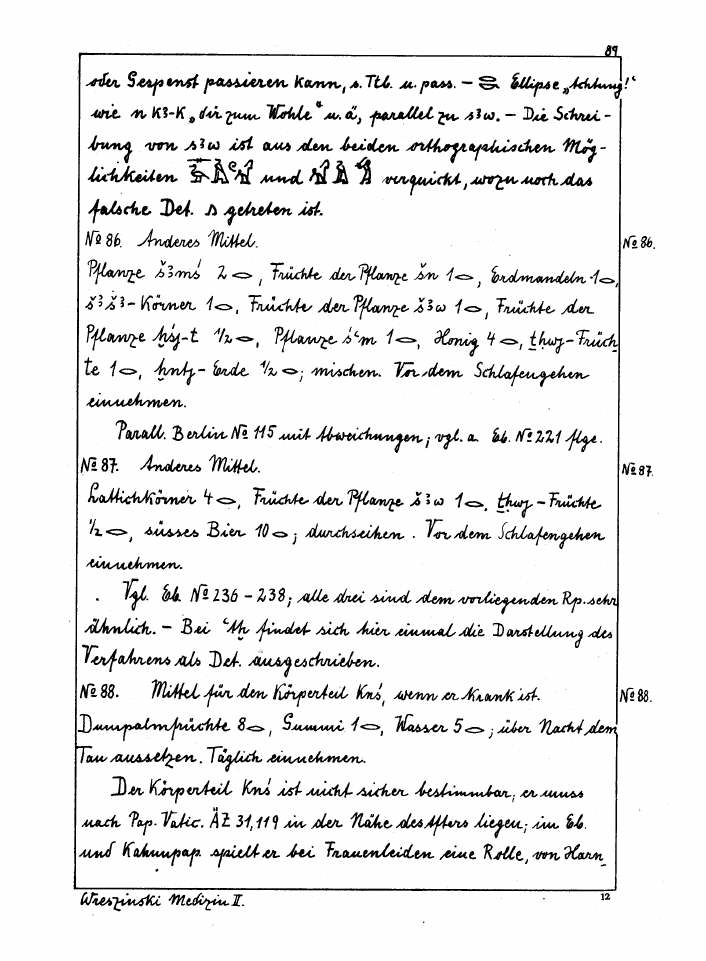 89
oder Gespenst passieren kann, s. Ttb. u. pass. – Ellipse „Achtung!“
wie n k3-k „dir zum Wohle“ u. ä., parallel zu s3w. – Die Schrei-
bung von s3w ist aus den beiden orthographischen Mög-
lichkeiten und verquickt, wozu noch das
falsche Det. getreten ist.
No 86. Anderes Mittel. No 86.
Pflanze š3mś 2 ⬭, Früchte der Pflanze šn 1 ⬭, Erdmandeln 1 ⬭,
š3š3-Körner 1 ⬭, Früchte der Pflanze š3w 1 ⬭, Früchte der
Pflanze ḫśj-t ½ ⬭, Pflanze śʿm 1 ⬭, Honig 4 ⬭, ṯḥwj-Früch
te 1 ⬭, ḫntj-Erde ½ ⬭; mischen. Vor dem Schlafengehen
einnehmen.
Parall. Berlin No 115 mit Abweichungen; vgl. a. Eb. No 221 flge.
No 87. Anderes Mittel. No 87.
Lattichkörner 4 ⬭, Früchte der Pflanze š3w 1 ⬭, ṯḥwj-Früchte
½ ⬭, süsses Bier 10 ⬭; durchseihen. Vor dem Schlafengehen
einnehmen.
Vgl. Eb. No 236 – 238; alle drei sind dem vorliegenden Rp. sehr
ähnlich. – Bei ʿtḫ findet sich hier einmal die Darstellung des
Verfahrens als Det. ausgeschrieben.
No 88. Mittel für den Körperteil Knś, wenn er krank ist. No 88.
Dumpalmfrüchte 8 ⬭, Gummi 1 ⬭, Wasser 5 ⬭; über Nacht dem
Tau aussetzen. Täglich einnehmen.
Der Körperteil Knś ist nicht sicher bestimmbar; er muss
nach Pap. Vatic. ÄZ 31,119 in der Nähe des Afters liegen; im Eb.
und Kahunpap. spielt er bei Frauenleiden eine Rolle, von Harn
Wreszinski Medizin II. 12